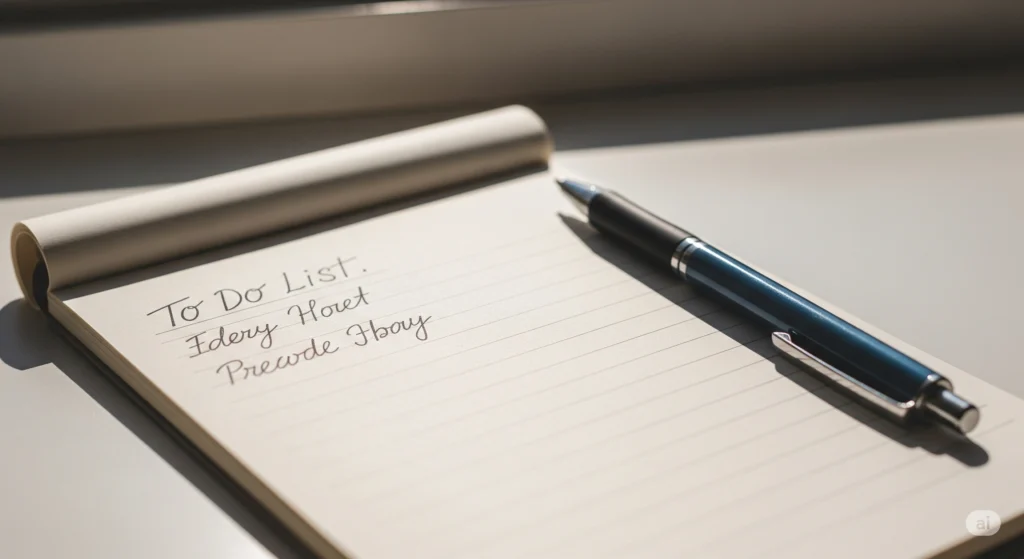 To Do List.
Idery Horet
Precode Hboy
ai